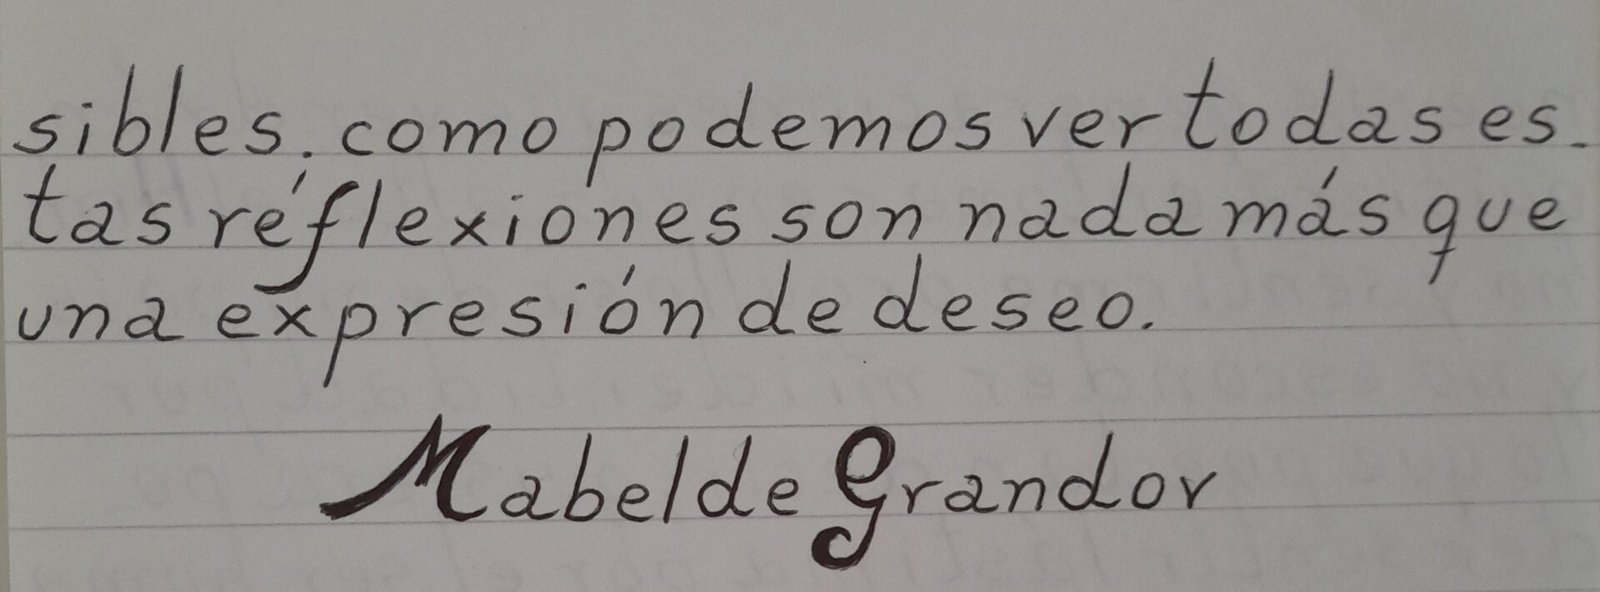 sibles. como podemos ver todas es-
tas réflexiones son nada más que
una expresión de deseo.
Mabel de Grandor